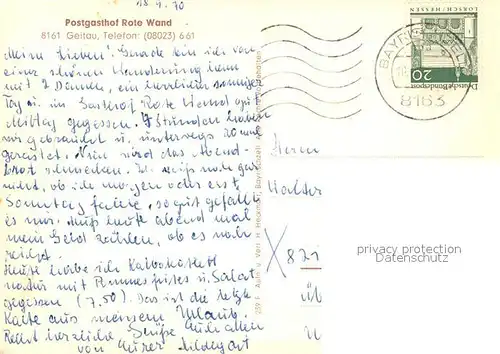 18.9.70
Postgasthof Rote Wand
8161 Geitau, Telefon: (08023) 661
Meine Lieben! Gerade bin ich von
einer schönen Wanderung heim
mit 2 Damen, ein herrlich sonniger
Tag u. im Gasthof Rote Wand gut
Mittag gegessen. 7 Stunden haben
wir gebraucht u. unterwegs 20 min
gerastet. Nun wird das Abend-
brot schmecken. Ich weiß noch gar
nicht, ob ich morgen oder erst
Sonntag fahre, so gut gefällt
es mir. Muß heute abend mal
mein Geld zählen, ob es noch
reicht.
Heute habe ich Kalbskotelett
natur mit Pommesfrites u. Salat
gegessen (7.50). Das ist die letzte
Karte aus meinem Urlaub.
Recht herzliche Grüße Euch allen
von Eurer Hildegart
LORSCH / HESSEN
Deutsche Bundespost
20
BAYRISCHZELL
8163
Herrn
Walter
X 821
privacy protection
AnsichtskartenAK.de